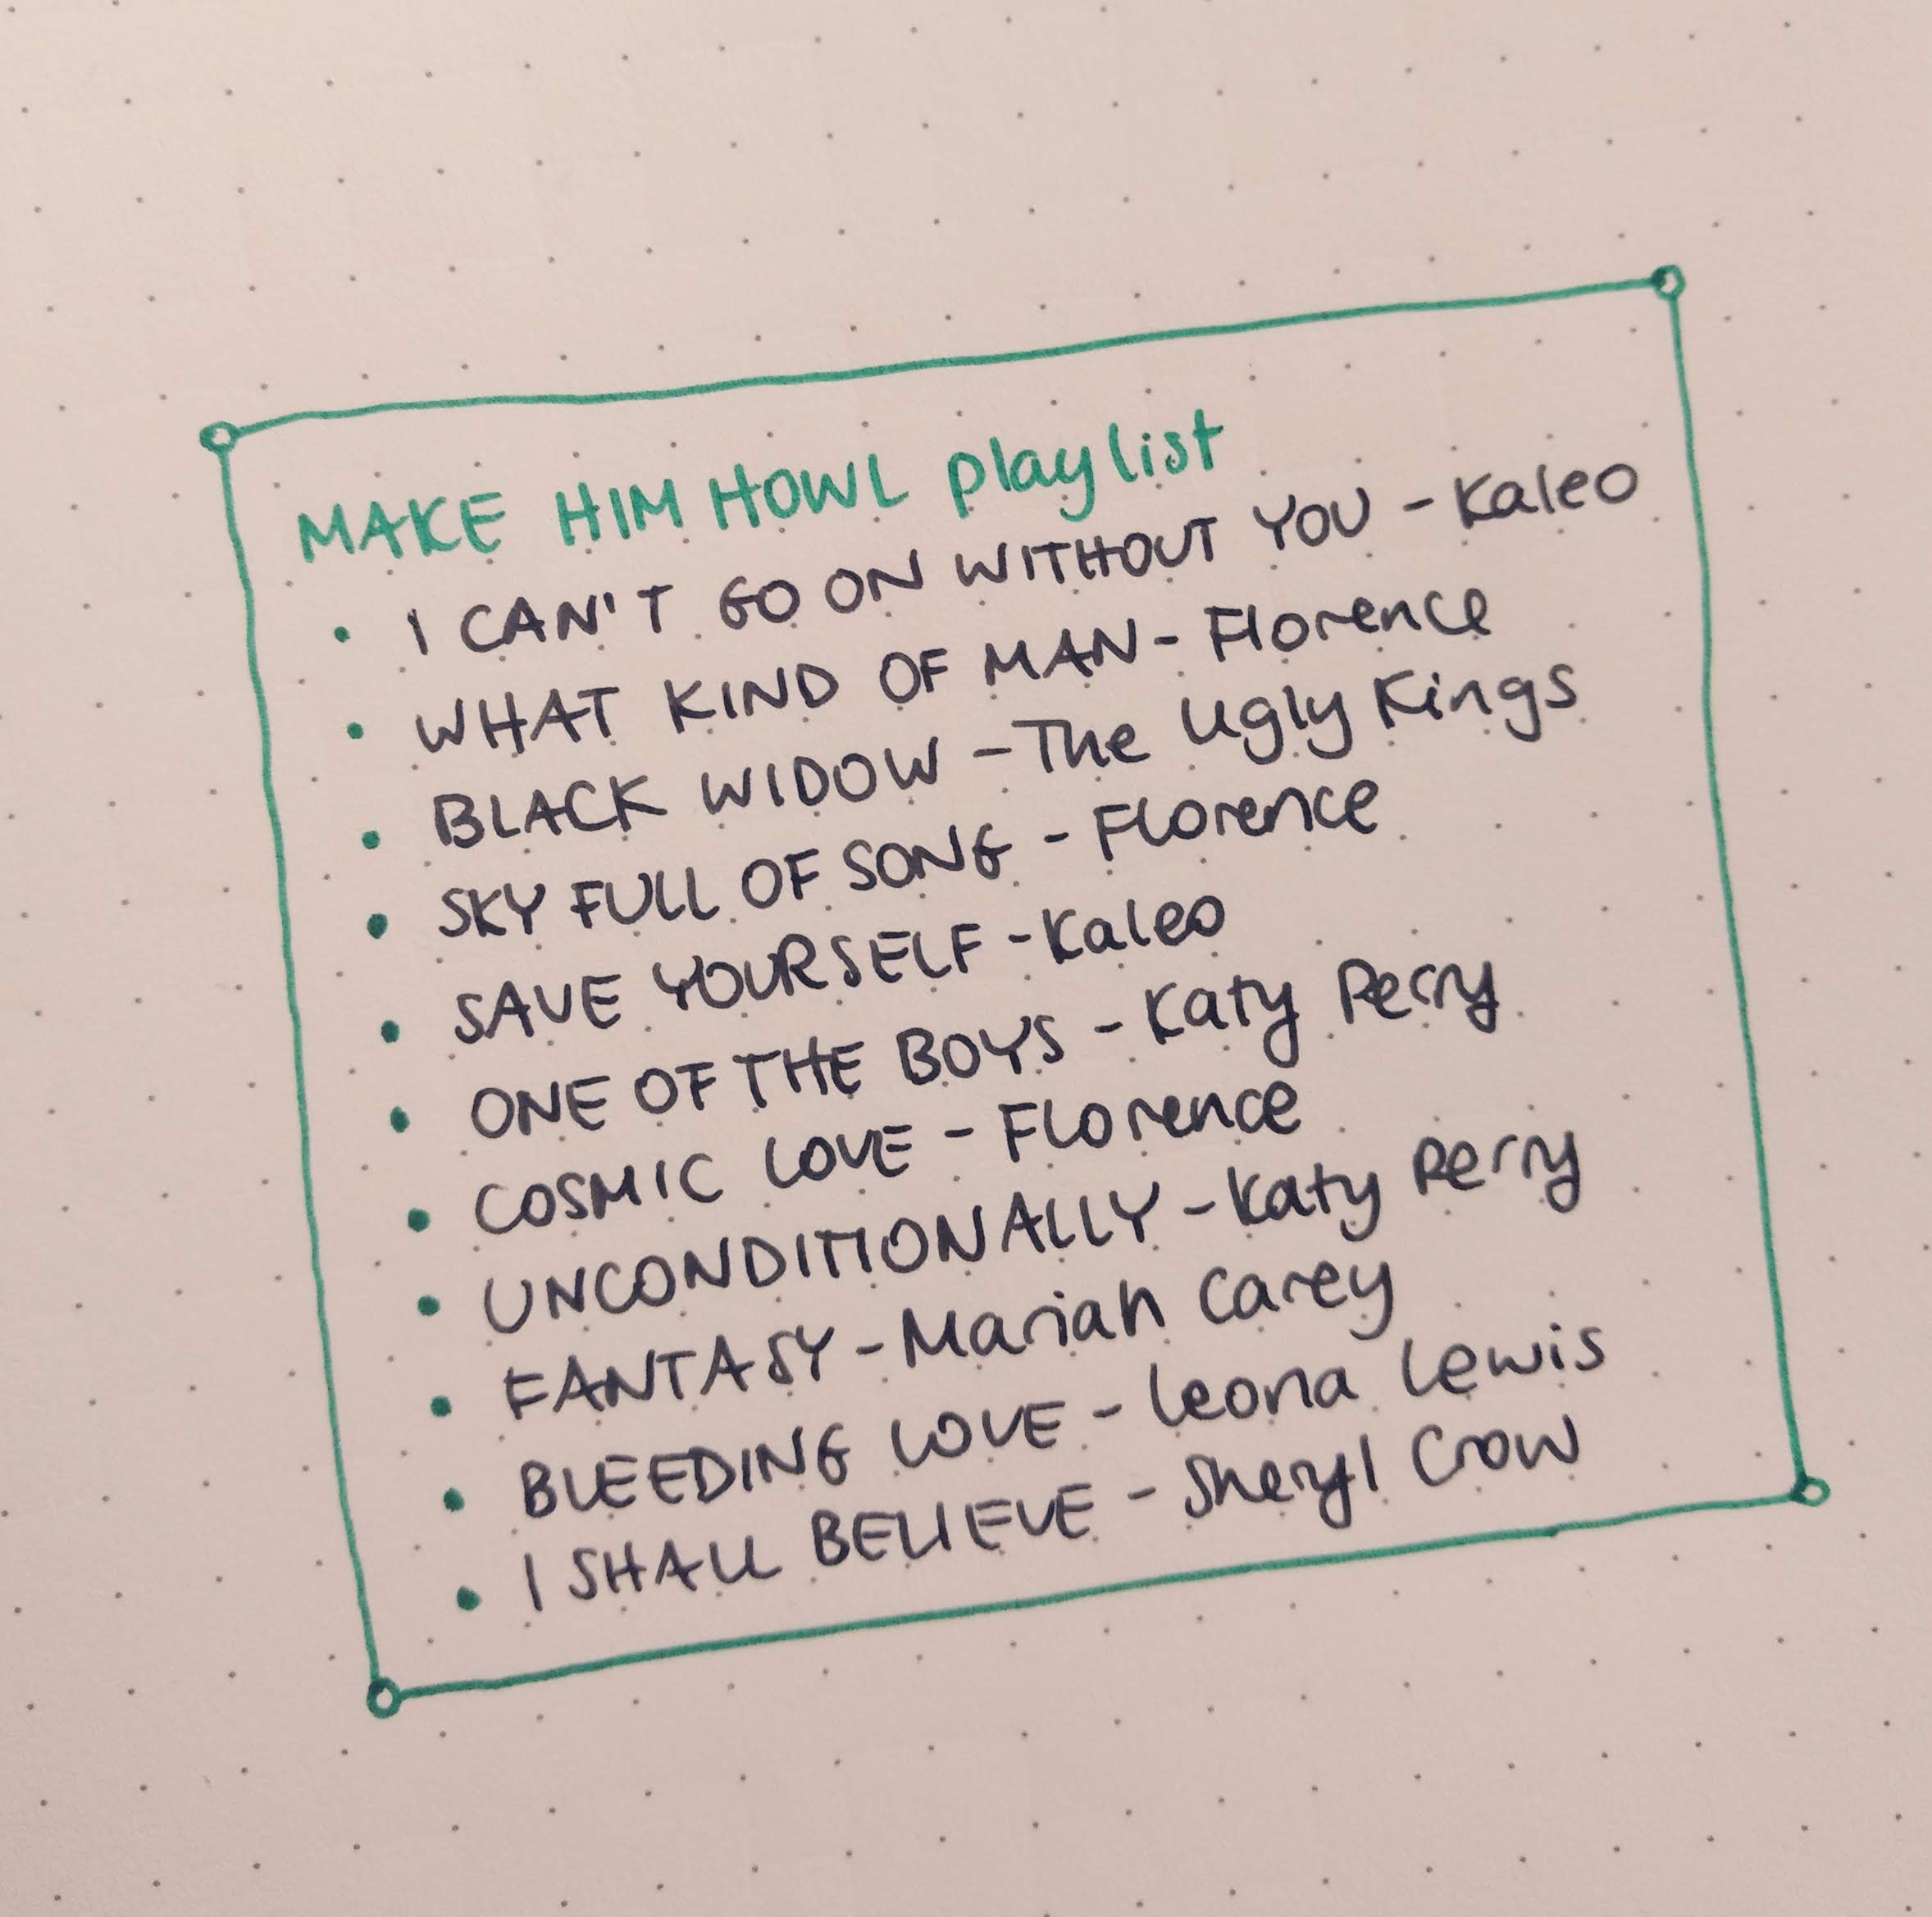 MAKE HIM HOWL playlist
• I CAN'T GO ON WITHOUT YOU - Kaleo
• WHAT KIND OF MAN - Florence
• BLACK WIDOW - The Ugly Kings
• SKY FULL OF SONG - Florence
• SAVE YOURSELF - Kaleo
• ONE OF THE BOYS - Katy Perry
• COSMIC LOVE - Florence
• UNCONDITIONALLY - Katy Perry
• FANTASY - Mariah Carey
• BLEEDING LOVE - Leona Lewis
• I SHALL BELIEVE - Sheryl Crow